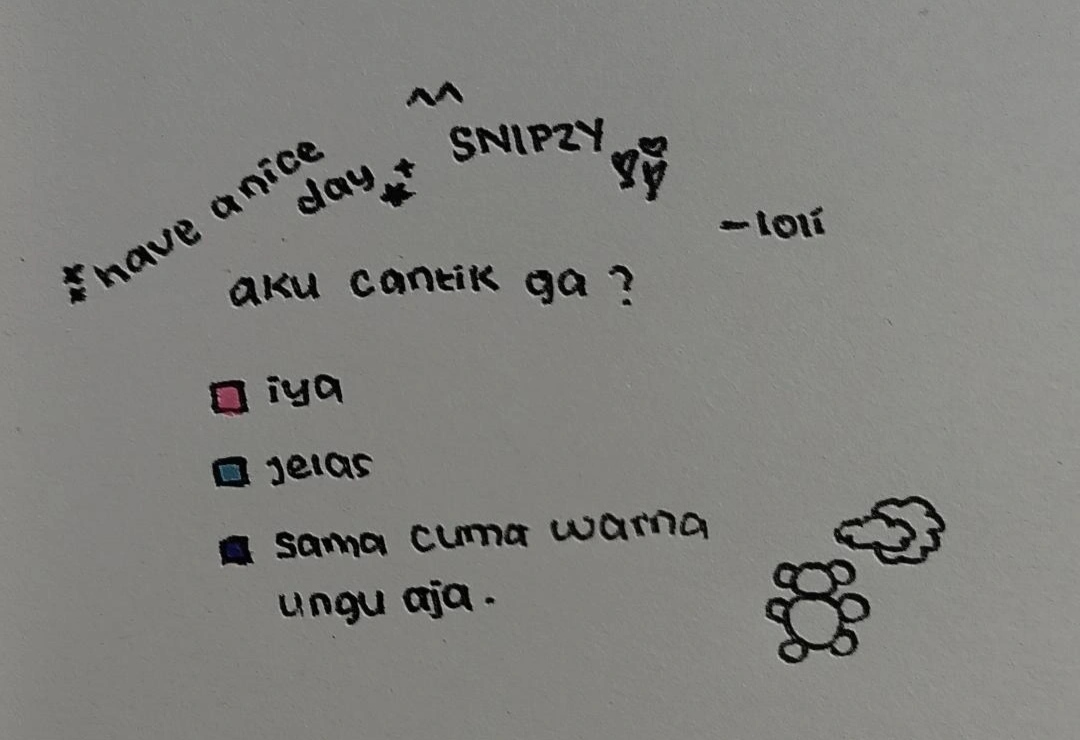 have a nice
day
SNIPZY
-loli
aku cantik ga ?
iya
jelas
sama cuma warna
ungu aja.